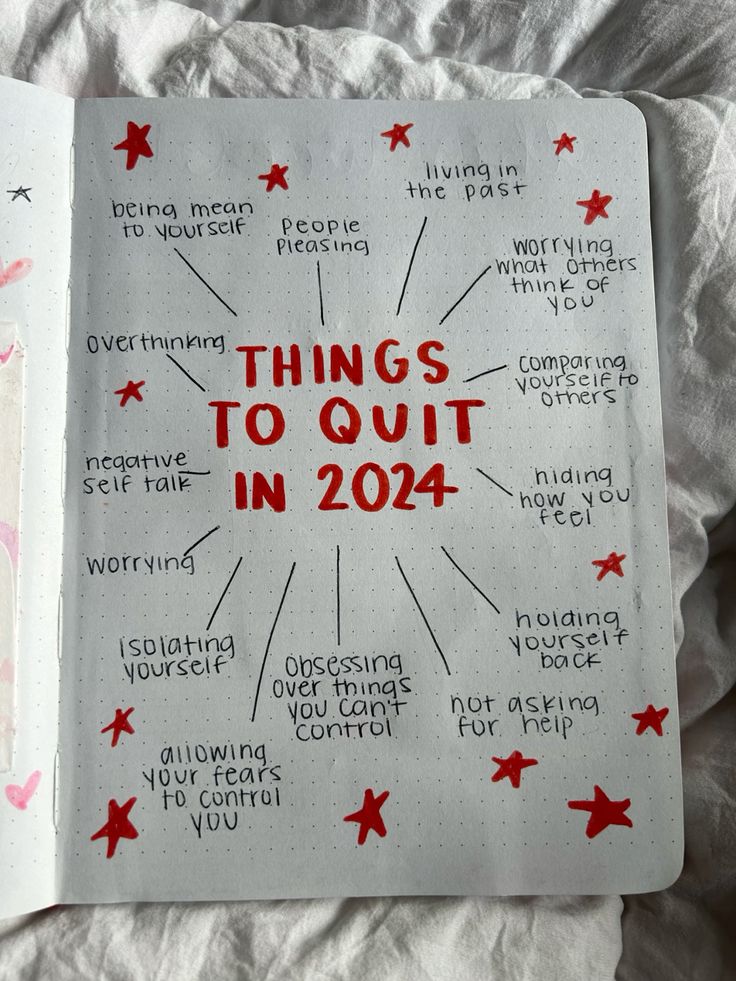 being mean
to yourself
People
Pleasing
living in
the past
worrying
what others
think of
you
overthinking
THINGS
TO QUIT
IN 2024
comparing
yourself to
others
negative
self talk
hiding
how you
feel
worrying
isolating
yourself
obsessing
over things
you can't
control
holding
yourself
back
not asking
for help
allowing
your fears
to control
you